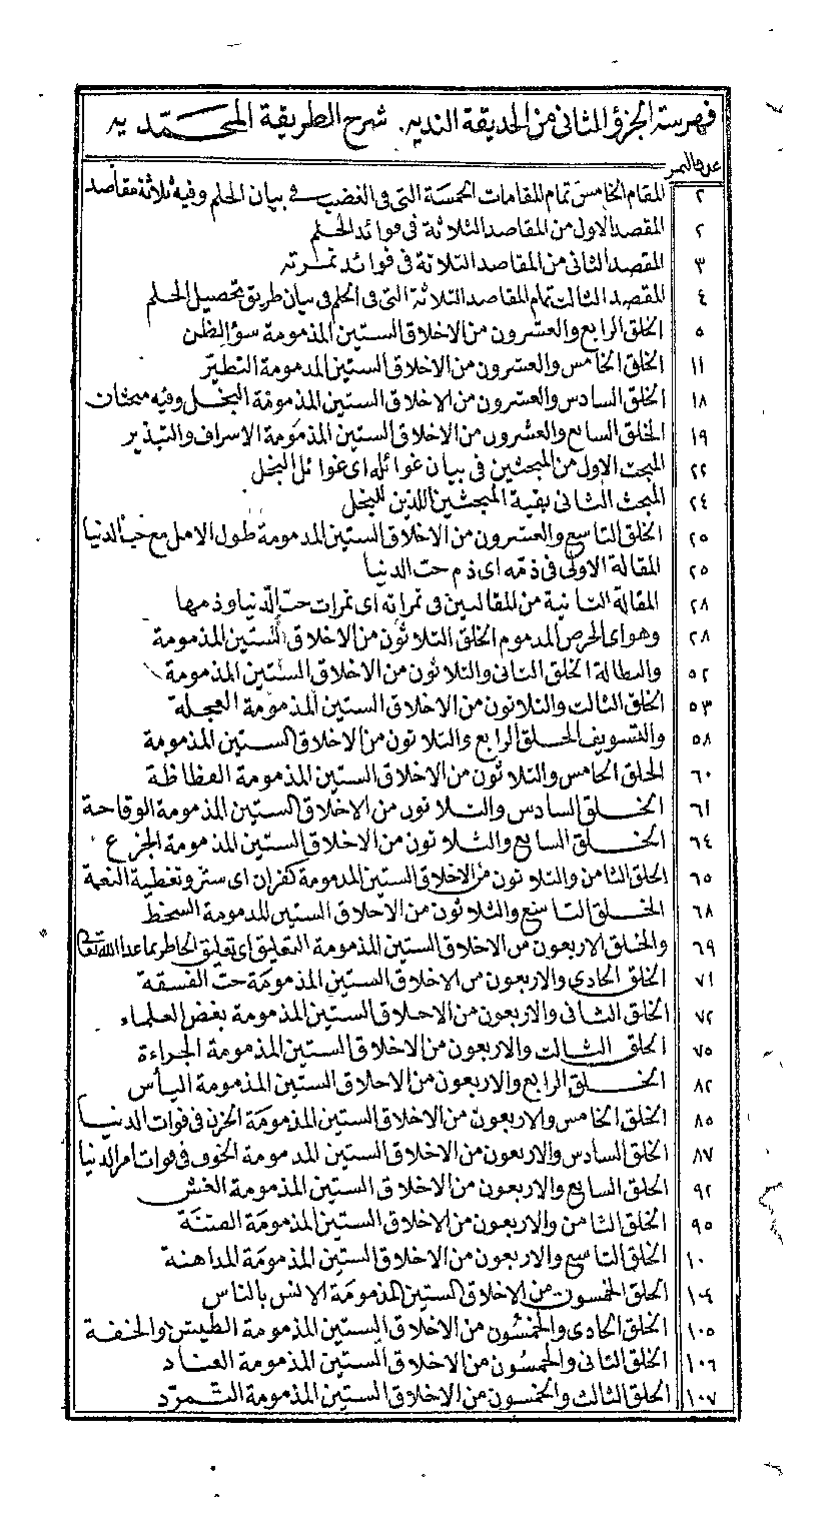 فهرسة الجزؤ الثانى من الحديقة الندية. شرح الطريقة المحمّديه
عدد النمر
٢ المقام الخامس تمام المقامات الخمسة التى فى الغضب فى بيان الحلم وفيه ثلاثة مقاصد
٢ المقصد الاول من المقاصد الثلاثة فى فوائد الحلم
٣ المقصد الثانى من المقاصد الثلاثة فى فوائد ثمرته
٤ المقصد الثالث تمام المقاصد الثلاثة التى فى الحلم فى بيان طريق تحصيل الحلم
٥ الخلق الرابع والعشرون من الاخلاق الستين المذمومة سؤ الظن
١١ الخلق الخامس والعشرون من الاخلاق الستين المذمومة التطيّر
١٨ الخلق السادس والعشرون من الاخلاق الستين المذمومة البخل وفيه مبحثان
١٩ الخلق السابع والعشرون من الاخلاق الستين المذمومة الاسراف والتبذير
٢٢ المبحث الاول من المبحثين فى بيان غوائله اى غوائل البخل
٢٤ المبحث الثانى بقية المبحثين اللذين للبخل
٢٥ الخلق التاسع والعشرون من الاخلاق الستين المذمومة طول الامل مع حب الدنيا
٢٥ المقالة الاولى فى ذمه اى ذم حب الدنيا
٢٨ المقالة الثانية من المقالتين فى ثمراته اى ثمرات حب الدنيا وذمها
٢٨ وهو اى الحرص المذموم الخلق الثلاثون من الاخلاق الستين المذمومة
٥٢ والبطالة الخلق الثانى والثلاثون من الاخلاق الستين المذمومة
٥٣ الخلق الثالث والثلاثون من الاخلاق الستين المذمومة العجلة
٥٨ والتسويف الخلق الرابع والثلاثون من الاخلاق الستين المذمومة
٦٠ الخلق الخامس والثلاثون من الاخلاق الستين المذمومة الفظاظة
٦١ الخلق السادس والثلاثون من الاخلاق الستين المذمومة الوقاحة
٦٤ الخلق السابع والثلاثون من الاخلاق الستين المذمومة الجزع
٦٥ الخلق الثامن والثلاثون من الاخلاق الستين المذمومة كفران اى ستر وتغطية النعمة
٦٨ الخلق التاسع والثلاثون من الاخلاق الستين المذمومة السخط
٦٩ والخلق الاربعون من الاخلاق الستين المذمومة التعليق اى تعليق الخاطر بما عدا الله تعالى
٧١ الخلق الحادى والاربعون من الاخلاق الستين المذمومة حب الفسقة
٧٢ الخلق الثانى والاربعون من الاخلاق الستين المذمومة بغض العلماء
٧٥ الخلق الثالث والاربعون من الاخلاق الستين المذمومة الجراءة
٨٢ الخلق الرابع والاربعون من الاخلاق الستين المذمومة اليأس
٨٥ الخلق الخامس والاربعون من الاخلاق الستين المذمومة الحزن فى فوات الدنيا
٨٧ الخلق السادس والاربعون من الاخلاق الستين المذمومة الخوف فى فوات امر الدنيا
٩٢ الخلق السابع والاربعون من الاخلاق الستين المذمومة الغش
٩٥ الخلق الثامن والاربعون من الاخلاق الستين المذمومة الفتنة
١٠٠ الخلق التاسع والاربعون من الاخلاق الستين المذمومة المداهنة
١٠٤ الخلق الخمسون من الاخلاق الستين المذمومة الانس بالناس
١٠٥ الخلق الحادى والخمسون من الاخلاق الستين المذمومة الطيش والخفة
١٠٦ الخلق الثانى والخمسون من الاخلاق الستين المذمومة العناد
١٠٧ الخلق الثالث والخمسون من الاخلاق الستين المذمومة التمرّد